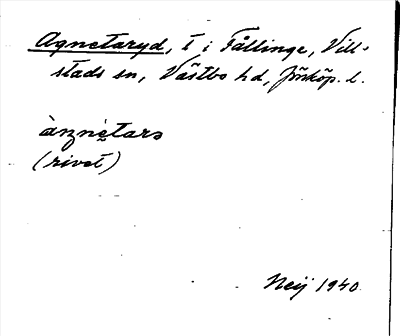 Agnetaryd, t i Fållinge, Vill-
stads sn, Västbo hd, Jönköp. l.
àŋnètars
(rivet)
Neij 1940